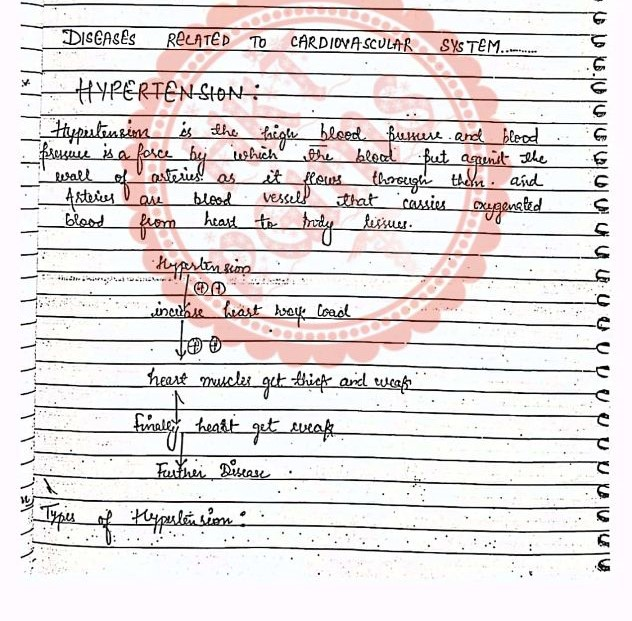 DISEASES RELATED TO CARDIOVASCULAR SYSTEM.........
HYPERTENSION :
Hypertension is the high blood pressure and blood
pressure is a force by which the blood put against the
wall of arteries. as it flows through them. and
Arteries are blood vessels that carries oxygenated
blood from heart to body tissues.
Hypertension
⊕⊕
increase heart work load
⊕ ⊕
heart muscles get thick and weak
finaley heart get weak
Further Disease
Types of Hypertension :